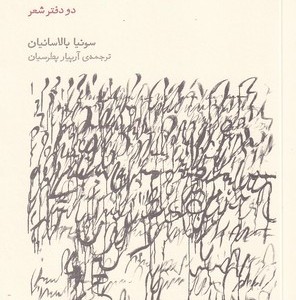 دو دفتر شعر
سونیا بالاسانیان
ترجمه‌ی آزپیار پطرسیان